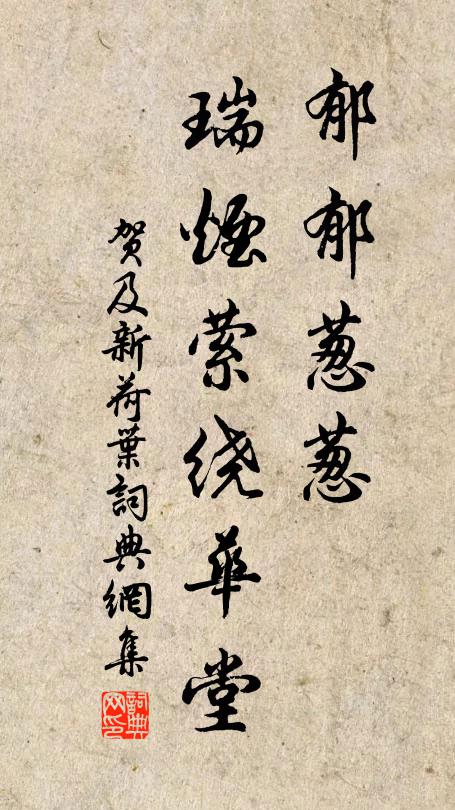 郁郁葱葱
瑞烟萦绕华堂
贺及新荷葉詞典網集
詞典
网印